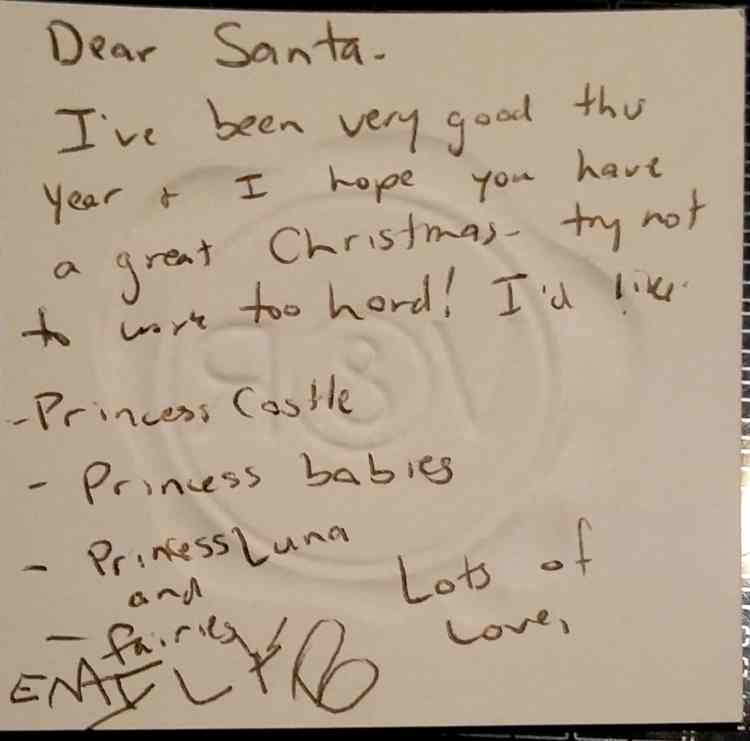 Dear Santa.
I've been very good this
year + I hope you have
a great Christmas. try not
to work too hard! I'd like
- Princess Castle
- Princess babies
- Princess Luna
and
- fairies
Lots of
Love,
EMILY